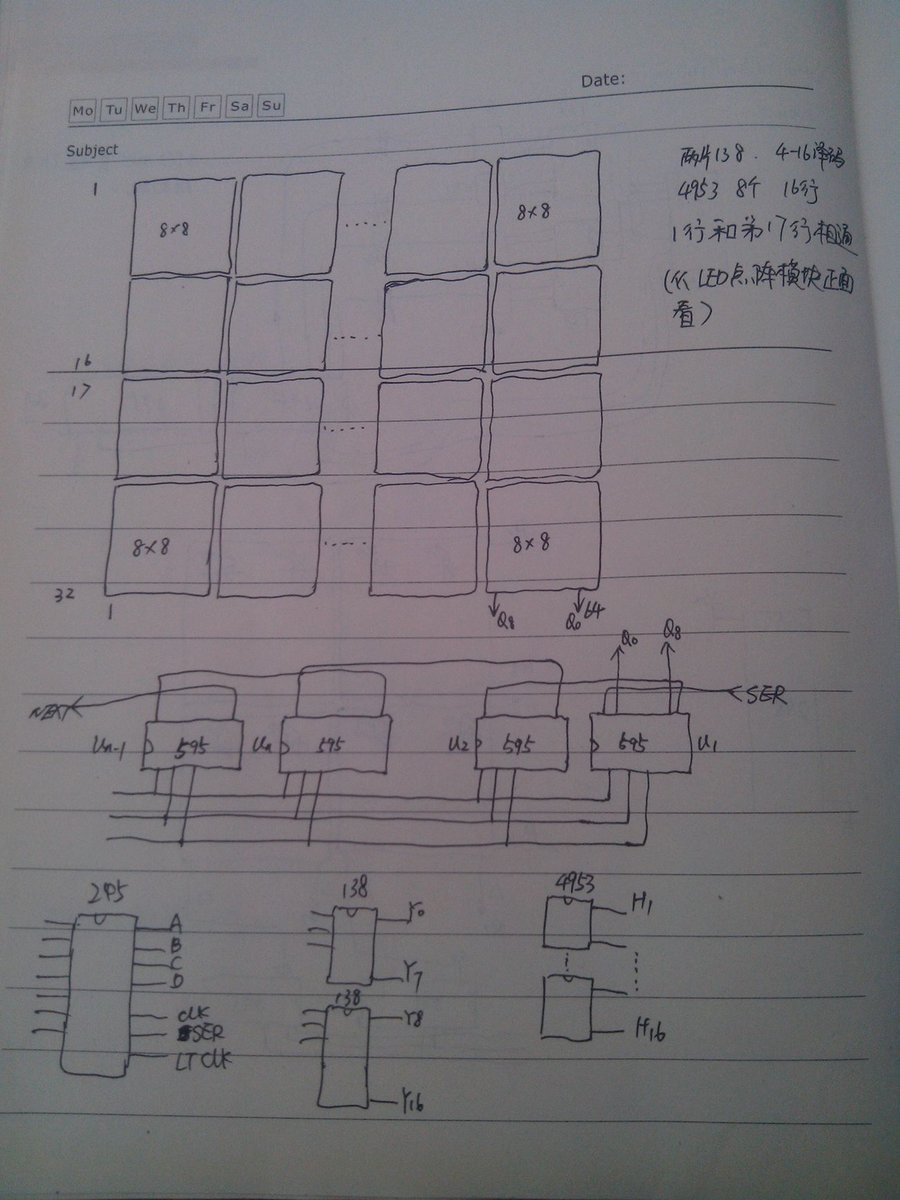 Date:
Mo Tu We Th Fr Sa Su
Subject
两片138. 4-16译码
4953 8个 16行
1行和第17行相通
(从LED点阵模块正面
看)
1
8×8
8×8
16
17
8×8
8×8
32
1
Q8
Q0 64
Q0
Q8
NEXT
SER
Un-1
595
Un
595
U2
595
595
U1
245
A
B
C
D
CLK
SER
LTCLK
138
Y0
Y7
138
Y8
Y16
4953
H1
H16